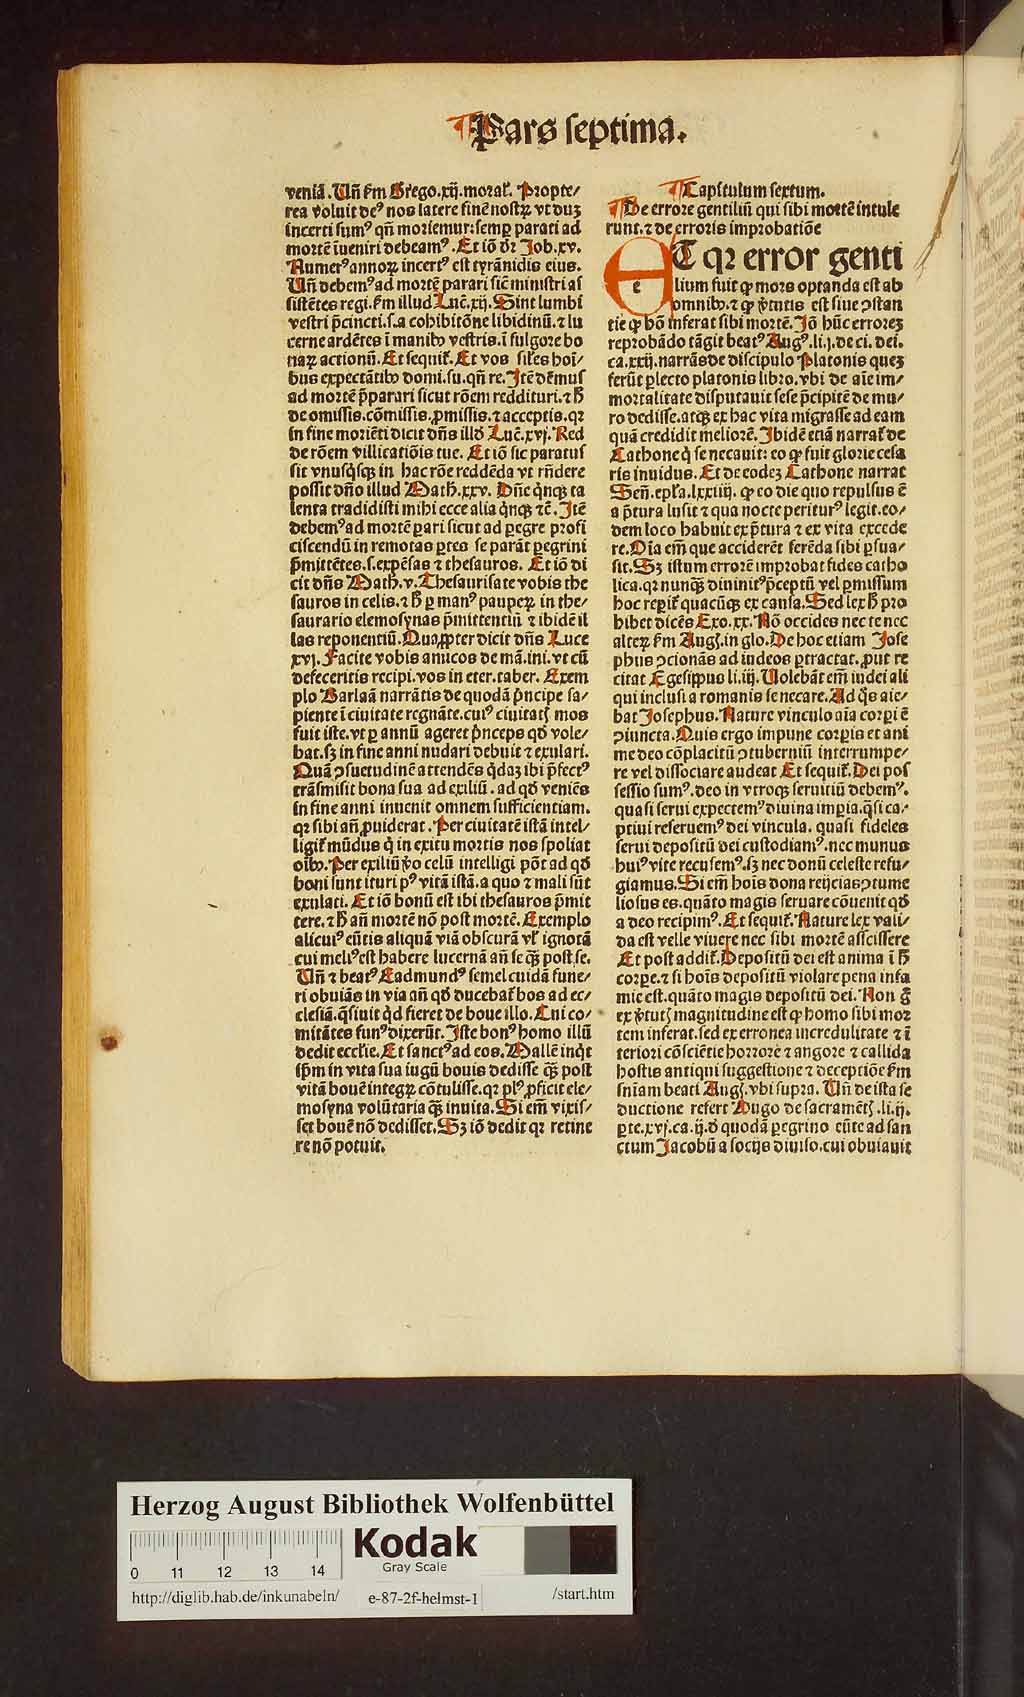 Pars septima.
veniā. Un̄ ẜm Grego.xij.moral'. Propte/
rea voluit deꝰ nos latere finē nostrꝝ vt duꝫ
incerti sumꝰ qn̄ moriemur: semꝑ parati ad
mortē īueniri debeamꝰ. Et iō dr̄ Job.xv.
Numerꝰ annoꝝ incertꝰ est tyrānidis eius.
Un̄ debemꝰ ad mortē parari sic̄ ministri as
sistētes regi. ẜm illud Luc̄.xij. Sint lumbi
vestri p̄cincti. s. a cohibitōne libidinū. ⁊ lu
cerne ardētes ī manibꝰ vestris. ī fulgore bo
naꝝ actionū. Et sequit᷑. Et vos sil'es hoī/
bus expectātibꝰ domi. su. qn̄ re. Itē debemus
ad mortē p̄parari sicut rōem reddituri. ⁊ ħ
de omissis. cōmissis. ꝓmissis. ⁊ acceptis. qꝛ
in fine moriēti dicit dn̄s illd̄ Luc̄.xvj. Red
de rōem villicatiōis tue. Et iō sic paratus
sit vnusq̇sqꝫ in hac rōne reddēda vt rn̄dere
possit dn̄o illud Math.xxv. Dn̄e q̇nqꝫ ta
lenta tradidisti mihi ecce alia q̇nqꝫ ⁊c̄. Itē
debemꝰ ad mortē ꝑari sicut ad ꝑegre profi
ciscendū in remotas ꝑtes se parāt ꝑegrini
p̄mittētes. s. expēsas ⁊ thesauros. Et iō di
cit dn̄s Math.v. Thesaurisate vobis the
sauros in celis. ⁊ ħ ꝑ manꝰ pauperꝝ in the/
saurario elemosynas p̄mittentiū ⁊ ibidē il
las reponentiū. Quapropter dicit dn̄s Luce
xvj. Facite vobis amicos de mā. ini. vt cū
defeceritis recipi. vos in eter. taber. Exem
plo Barlaā narrātis de quodā p̄ncipe sa/
piente ī ciuitate regnāte. cuiꝰ ciuitatꝭ mos
fuit iste. vt ꝑ annū ageret p̄nceps qd̄ vole/
bat. sꝫ in fine anni nudari debuit ⁊ exulari.
Quā ↄsuetudinē attendēs q̇daꝫ ibi p̄fectꝰ
trāsmisit bona sua ad exiliū. ad qd̄ veniēs
in fine anni inuenit omnem sufficientiam.
qꝛ sibi an̄ ꝓuiderat. Per ciuitatē istā intel/
ligit᷑ mūdus q̇ in exitu mortis nos spoliat
oībꝰ. Per exiliū ꝟo celū intelligi pōt ad qd̄
boni sunt ituri pꝰ vitā istā. a quo ⁊ mali sūt
exulati. Et iō bonū est ibi thesauros p̄mit
tere. ⁊ ħ an̄ mortē nō post mortē. Exemplo
alicuiꝰ eūtis aliquā viā obscurā vl' ignotā
cui meliꝰ est habere lucernā an̄ se qꝫ post se.
Un̄ ⁊ beatꝰ Eadmundꝰ semel cuidā fune/
ri obuiās in via an̄ qd̄ ducebat᷑ bos ad ec/
clesiā. q̄siuit qd̄ fieret de boue illo. Cui co/
mitātes funꝰ dixerūt. Iste bonꝰ homo illū
dedit eccl'ie. Et sanctꝰ ad eos. Mallē inq̇t
ip̄m in vita sua iugū bouis dedisse qꝫ post
vitā bouē integrꝝ cōtulisse. qꝛ plꝰ ꝓficit ele/
mosyna volūtaria qꝫ inuita. Si em̄ vixis/
set bouē nō dedisset. Sꝫ iō dedit qꝛ retine
re nō potuit.
Capitulum sextum.
De errore gentiliū qui sibi mortē intule
runt. ⁊ de erroris improbatiōe
ET qꝛ error genti
e
lium fuit ꝙ mors optanda est ab
omnibꝰ. ⁊ ꝙ ꝟtutis est siue ↄstan
tie ꝙ hō inferat sibi mortē. Iō hūc erroreꝫ
reprobādo tāgit beatꝰ Augꝰ. li.j. de ci. dei.
ca.xxij. narrās de discipulo Platonis queꝫ
ferūt ꝑlecto platonis libro. vbi de aīe im/
mortalitate disputauit sese p̄cipitē de mu/
ro dedisse. atqꝫ ex hac vita migrasse ad eam
quā credidit meliorē. Ibidē etiā narrat᷑ de
Cathone q̇ se necauit: eo ꝙ fuit glorie cesa
ris inuidus. Et de eodeꝫ Cathone narrat
Sen̄. epl'a.lxxiiij. ꝙ eo die quo repulsus ē
a p̄tura lusit ⁊ qua nocte periturꝰ legit. eo/
dem loco habuit ex p̄tura ⁊ ex vita excede
re. Oīa em̄ que acciderēt ferēda sibi ꝑsua/
sit. Sꝫ istum errorē improbat fides catho
lica. qꝛ nunqꝫ diuinitꝰ p̄ceptū vel ꝑmissum
hoc reperit᷑ quacūqꝫ ex causa. Sed lex ħ pro
hibet dicēs Exo.xx. Nō occides nec te nec
alteꝝ ẜm Augꝭ. in glo. De hoc etiam Jose
phus ↄcionās ad iudeos ꝑtractat. ꝓut re
citat Egesippus li.iij. Uolebāt em̄ iudei ali
qui inclusi a romanis se necare. Ad q̄s aie/
bat Josephus. Nature vinculo aīa corpi ē
ↄiuncta. Quis ergo impune corpis et ani
me deo cōplacitū ↄtuberniū interrumpe/
re vel dissociare audeat Et sequit᷑. Dei pos
sessio sumꝰ. deo in vtroqꝫ seruitiū debemꝰ.
quasi serui expectemꝰ diuina imperia. q̄si ca/
ptiui reseruemꝰ dei vincula. quasi fideles
serui depositū dei custodiamꝰ. nec munus
huiꝰ vite recusemꝰ. sꝫ nec donū celeste refu/
giamus. Si em̄ hoīs dona reijcias ↄtume
liosus es. quāto magis seruare cōuenit qd̄
a deo recipimꝰ. Et sequit᷑. Nature lex vali/
da est velle viuere nec sibi mortē asciscere
Et post addit᷑. Depositū dei est anima ī ħ
corꝑe. ⁊ si hoīs depositū violare pena infa
mie est. quāto magis depositū dei. Non g̊
ex ꝟtutꝭ magnitudine est ꝙ homo sibi mor
tem inferat. sed ex erronea incredulitate ⁊ ī
teriori cōsciētie horrore ⁊ angore ⁊ callida
hostis antiqui suggestione ⁊ deceptiōe ẜm
sn̄iam beati Augꝭ. vbi supra. Un̄ de ista se
ductione refert Hugo de sacramētꝭ. li.ij.
ꝑte.xvj. ca.ij. d̄ quodā ꝑegrino eūte ad san
ctum Jacobū a socijs diuiso. cui obuiauit
Herzog August Bibliothek Wolfenbüttel
0 11 12 13 14
Kodak
Gray Scale
http://diglib.hab.de/inkunabeln/ e-87-2f-helmst-1 /start.htm